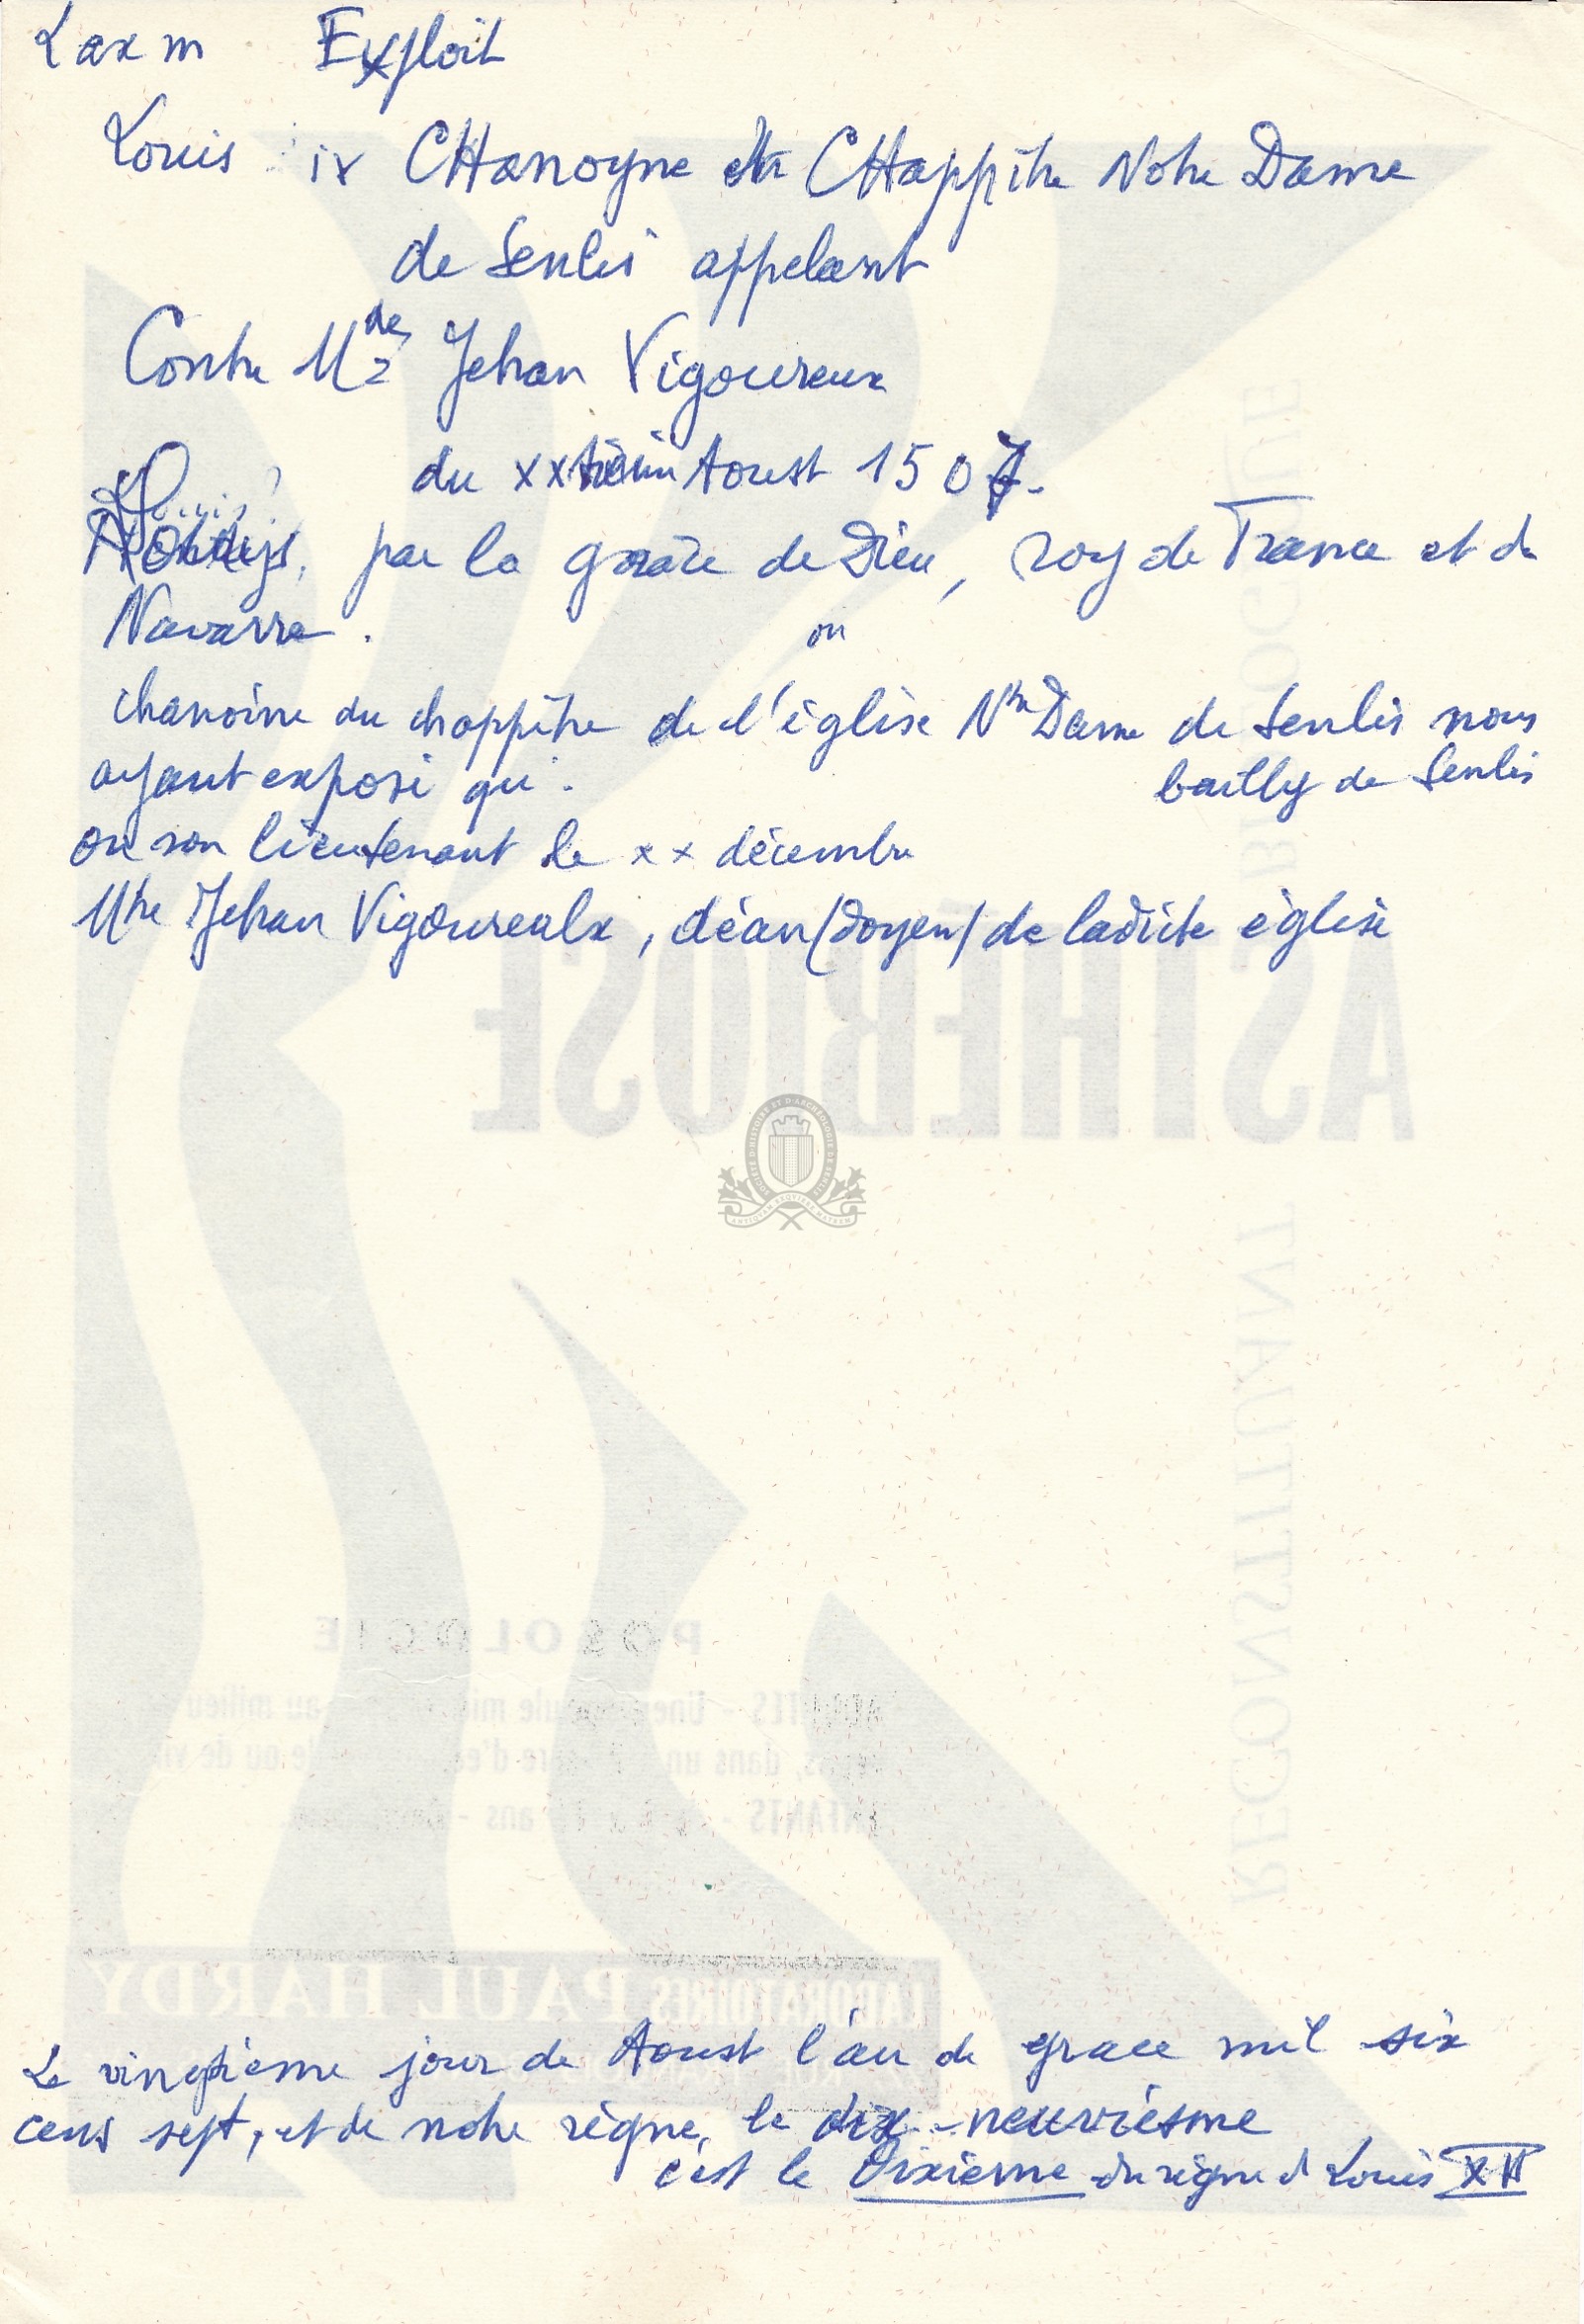 Lax m Exploit
Louis ix CHanoyne du CHappitre Notre Dame
de Senlis appelant
Contre Me des Jehan Vigoureux
du xx Aoust 1507.
Louis ?
par la grace de Dieu, roy de France et de
Navarre. ou
chanoine du chappitre de l'église Ntre Dame de Senlis nous
ayant exposé qu'. bailly de Senlis
ou son lieutenant le xx décembre
Mtre Jehan Vigourealx, déan/doyen/de ladicte église
ASTHÉBIOSE
RECONSTITUANT BIOLOGIQUE
SOCIÉTÉ D'HISTOIRE ET D'ARCHÉOLOGIE DE SENLIS
POSOLOGIE
ADULTES - Une ampoule au milieu
dans un d'eau ou de vin
ENFANTS - ans -
LABORATOIRES PAUL HARDY
Le vingtième jour de Aoust l'an de grace mil six
cens sept, et de notre règne, le dix-neuviésme
c'est le Dixième du règne d Louis XII